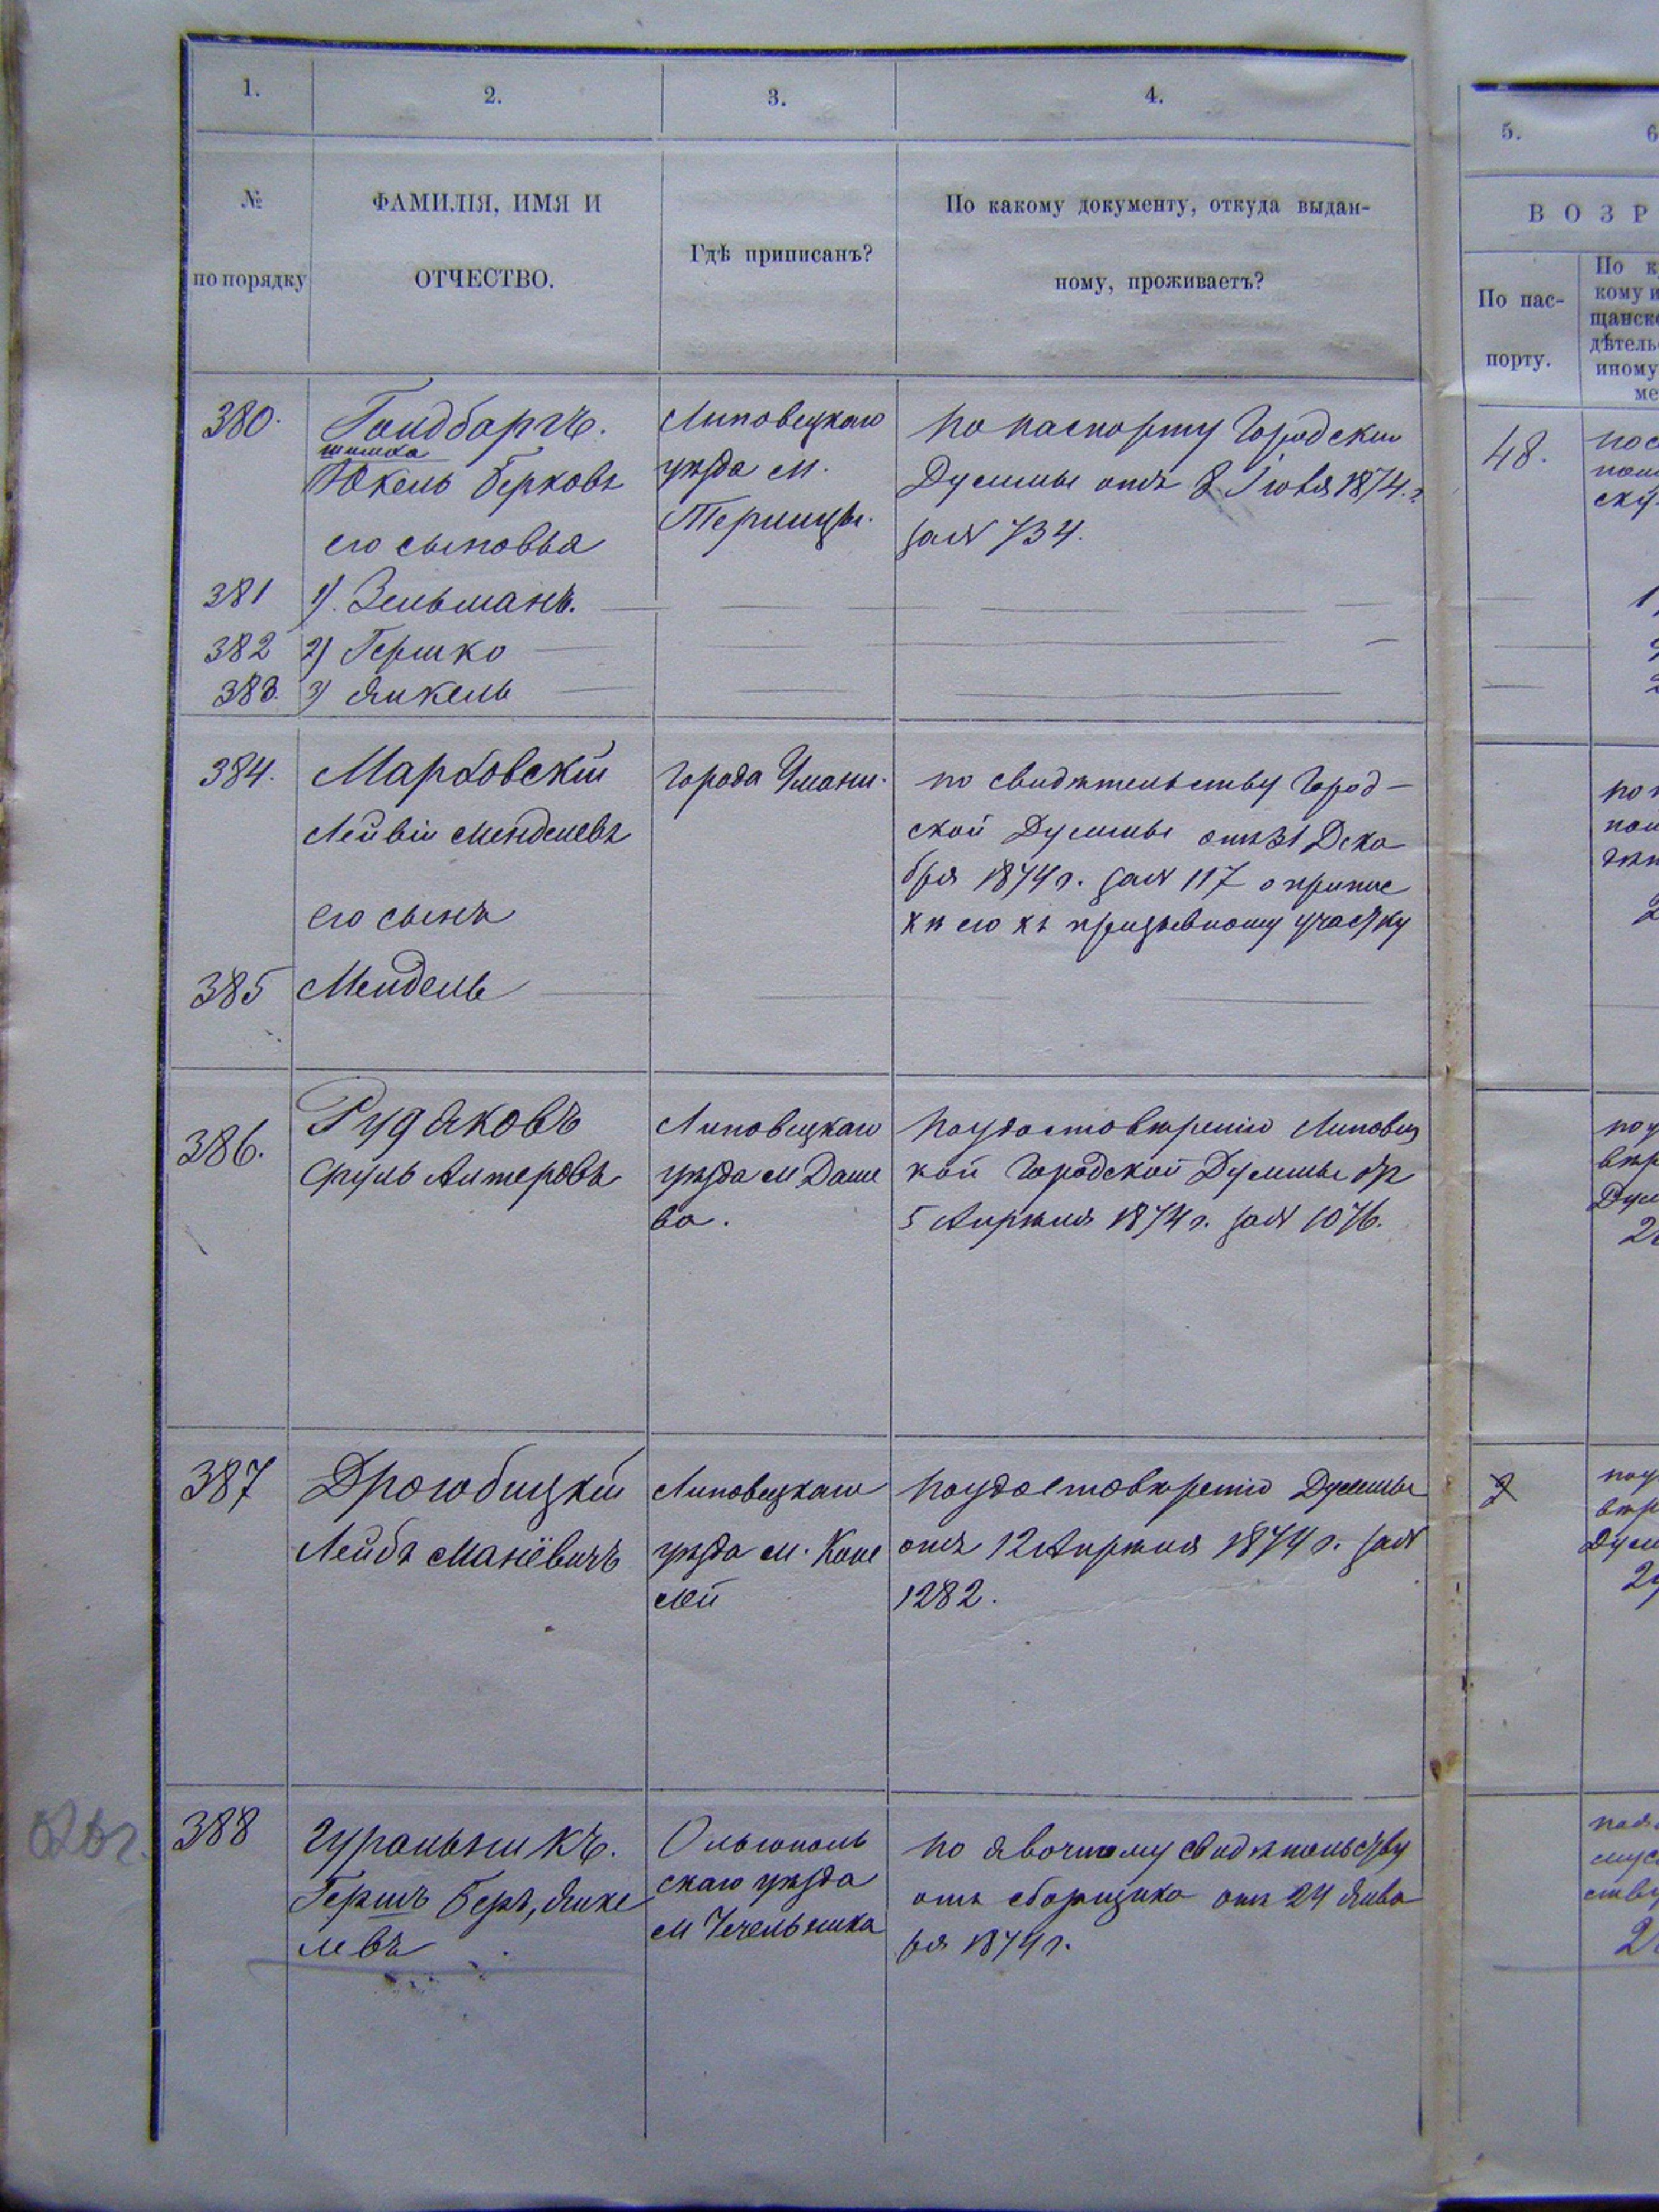 1.
2.
3.
4.
№
по порядку
ФАМИЛІЯ, ИМЯ И
ОТЧЕСТВО.
Гдѣ приписанъ?
По какому документу, откуда выдан-
ному, проживаетъ?
380.
Гольдбаргъ.
Юкель Берковъ
его сыновья
Липовецкаго
уѣзда м.
по паспорту Городской
Думмы отъ 8 1874. г
за № 734.
381
1). Зельманъ.
382
2) Гершко
383.
3) Янкель
384.
Лейвій Менделевъ
его сынъ
города Умани.
по свидѣтельству Город-
ской Думмы отъ 31 Дека
бря 1874 г. за № 117 о припис
кѣ его къ призывному участку
385
Мендель
386.
Рудяковъ
Сруль Алтеровъ
Липовецкаго
уѣзда м Даше
ва.
по удостовѣренію Липовец
кой Городской Думмы от
5 Апрѣля 1874 г. за № 1076.
387
Дрогобицкій
Лейба Манёвичъ
Липовецкаго
уѣзда м.
по удостовѣренію Думмы
отъ 12 Апрѣля 1874 г. за №
1282.
388
Гуральникъ.
Гершъ Беръ, Янке
левъ
Ольгополь
скаго уѣзда
м Чечельника
по явочному свидѣтельству
отъ сборщика отъ 24 Янва
ря 1874 г.
5.
6
ВОЗР
По пас-
порту.
По к
кому и
щанск
дѣтель
иному
ме
48.